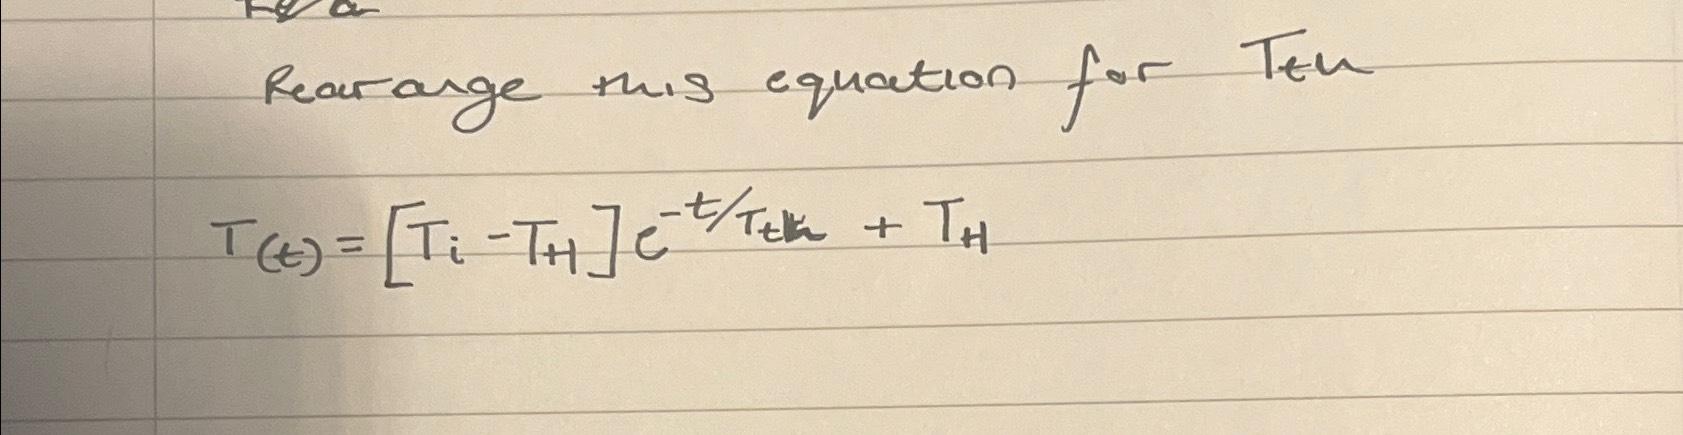 Rearange this equation for Tth
T(t) = [Ti - TH] e^-t/Tth + TH